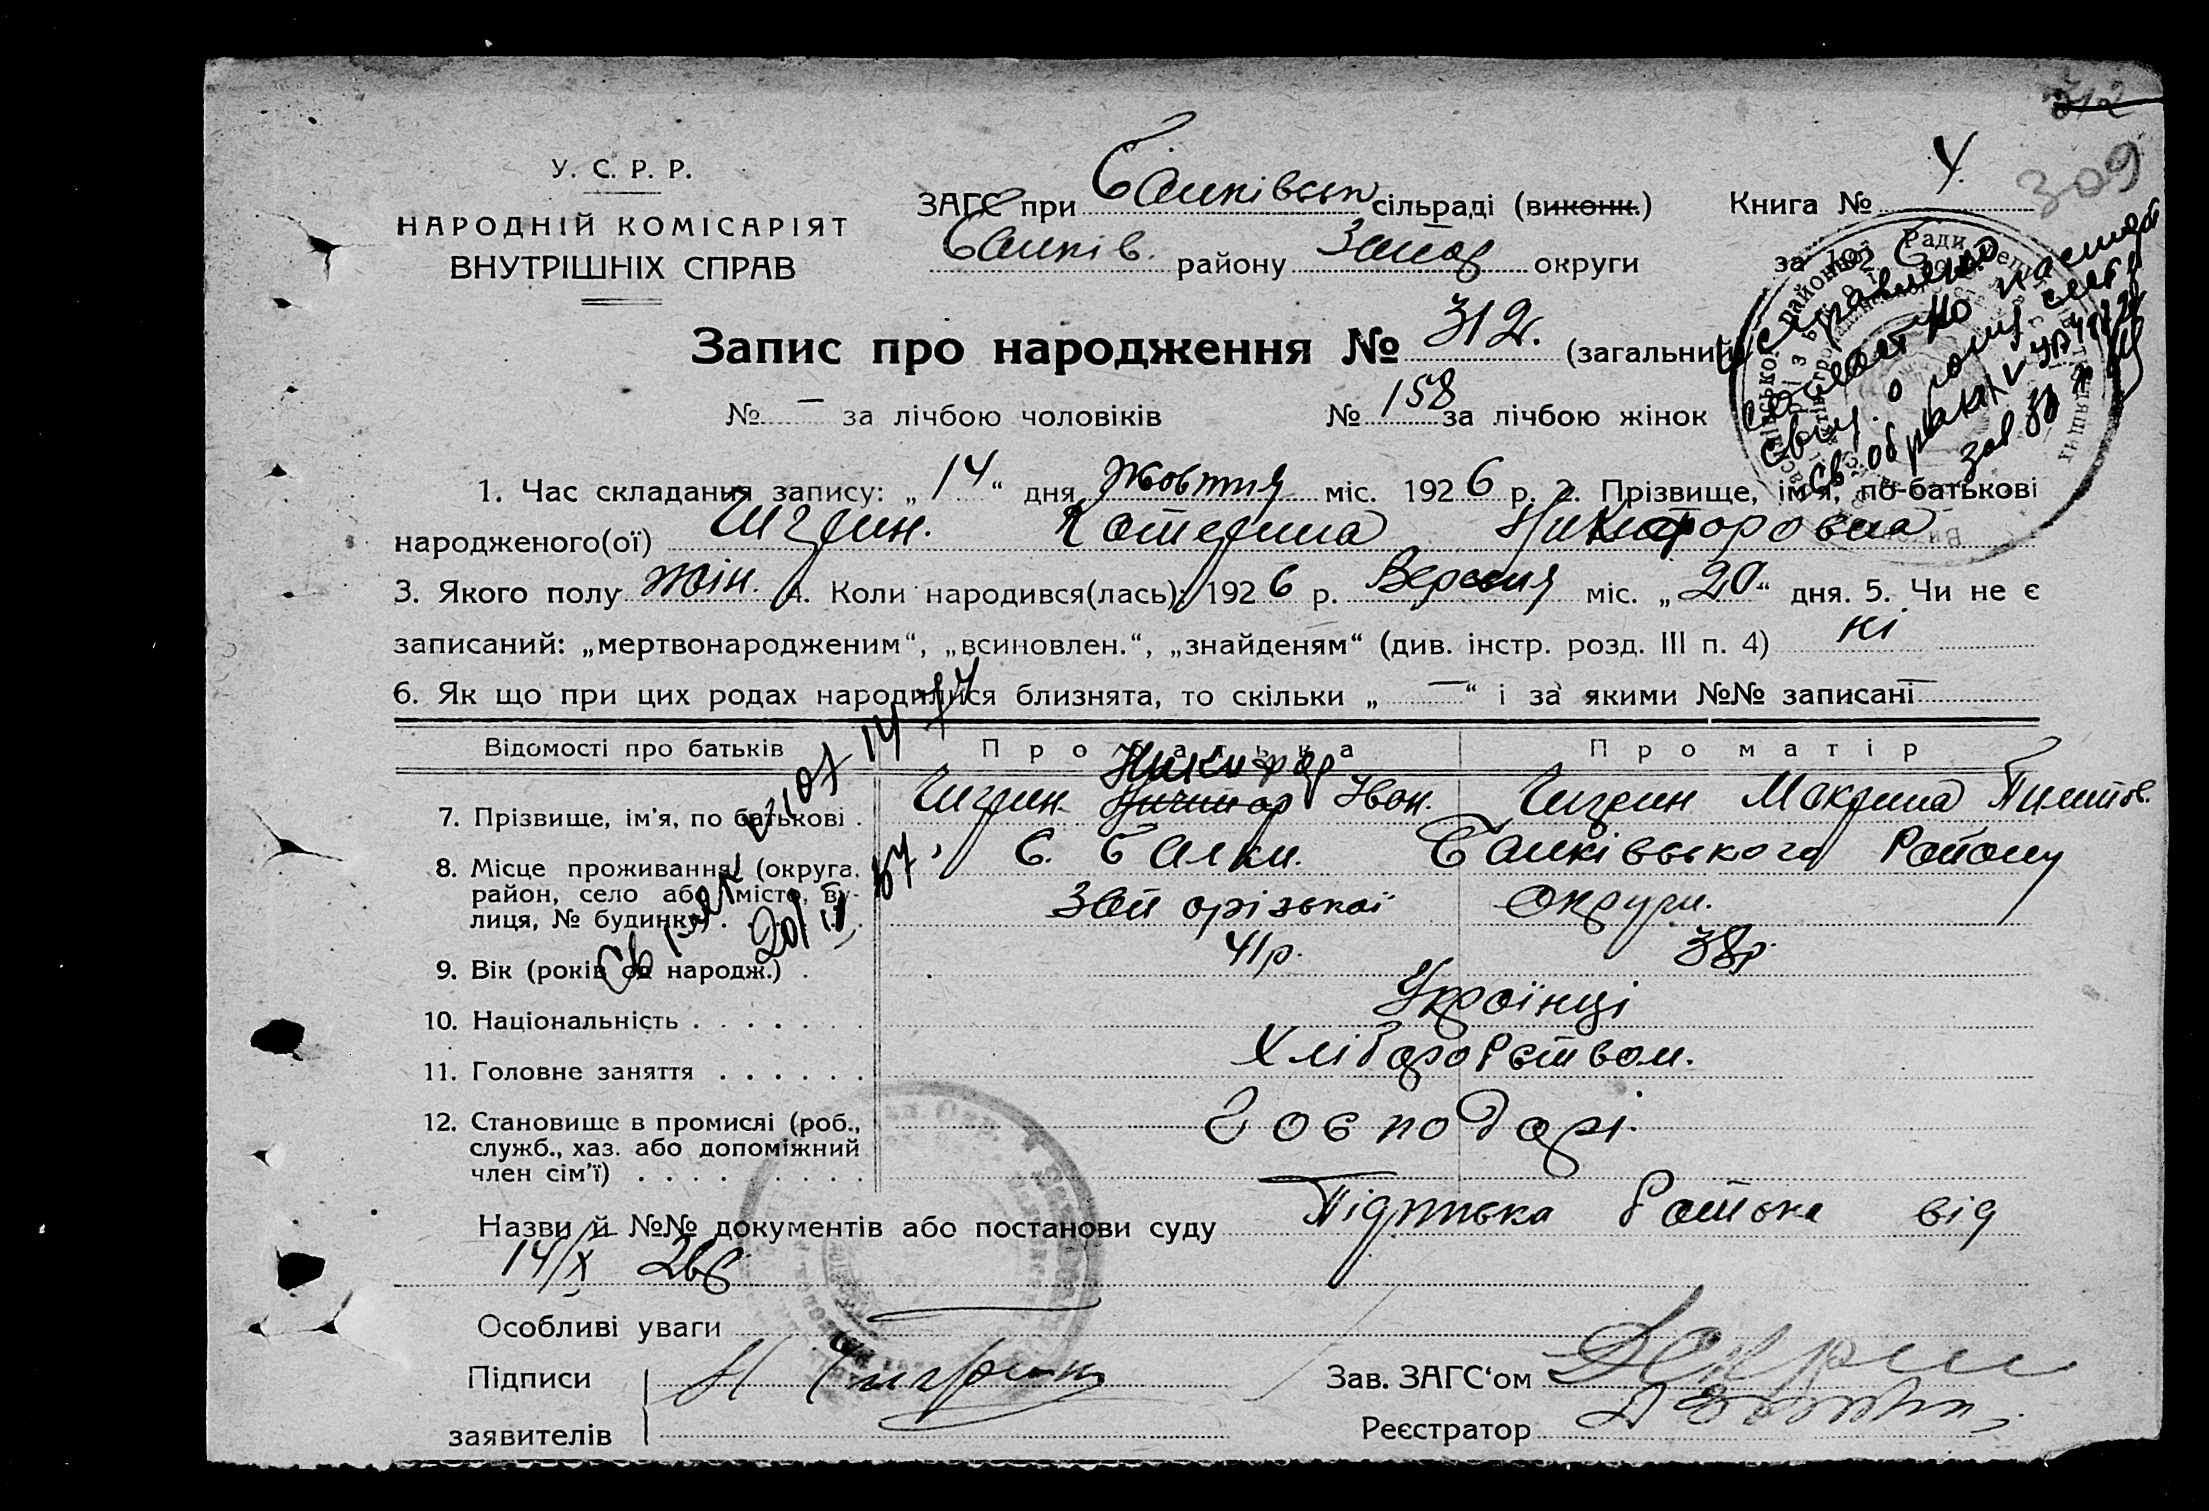 312
309
У. С. Р. Р.
НАРОДНІЙ КОМІСАРІЯТ
ВНУТРІШНІХ СПРАВ
ЗАГС при Балківськ сільраді (виконк.) Книга № 4.
Балків. району Запор округи за 1926 р.
Запис про народження № 312. (загальний)
№ — за лічбою чоловіків № 158 за лічбою жінок
1. Час складання запису: „14“ дня жовтня міс. 1926 р. 2. Прізвище, ім'я, по-батькові
народженого(ої) Чигрин. Катерина Никифоровна
3. Якого полу жін. 4. Коли народився(лась): 1926 р. Вересня міс. „20“ дня. 5. Чи не є
записаний: „мертвонародженим“, „всиновлен.“, „знайденям“ (див. інстр. розд. III п. 4) ні
6. Як що при цих родах народилися близнята, то скільки „—“ і за якими №№ записані —
Відомості про батьків Про батька Про матір
Никифор
7. Прізвище, ім'я, по батькові . Чигрин Ничипор Іван. Чигрин Макрина Пилипов.
8. Місце проживання (округа, с. Балки. Балківського Району
район, село або місто, ву-
лиця, № будинку) . . . Запорізької Округи.
9. Вік (років од народж.) . 41р. 38р.
10. Національність . . . . . . . Українці
11. Головне заняття . . . . . . Хліборобством.
12. Становище в промислі (роб., Господарі.
служб., хаз. або допоміжний
член сім'ї) . . . . . . . . .
Назви й №№ документів або постанови суду Підписька батька від
14/X 26р
Особливі уваги
Підписи Н Чигрин Зав. ЗАГС‘ом
заявителів Реєстратор